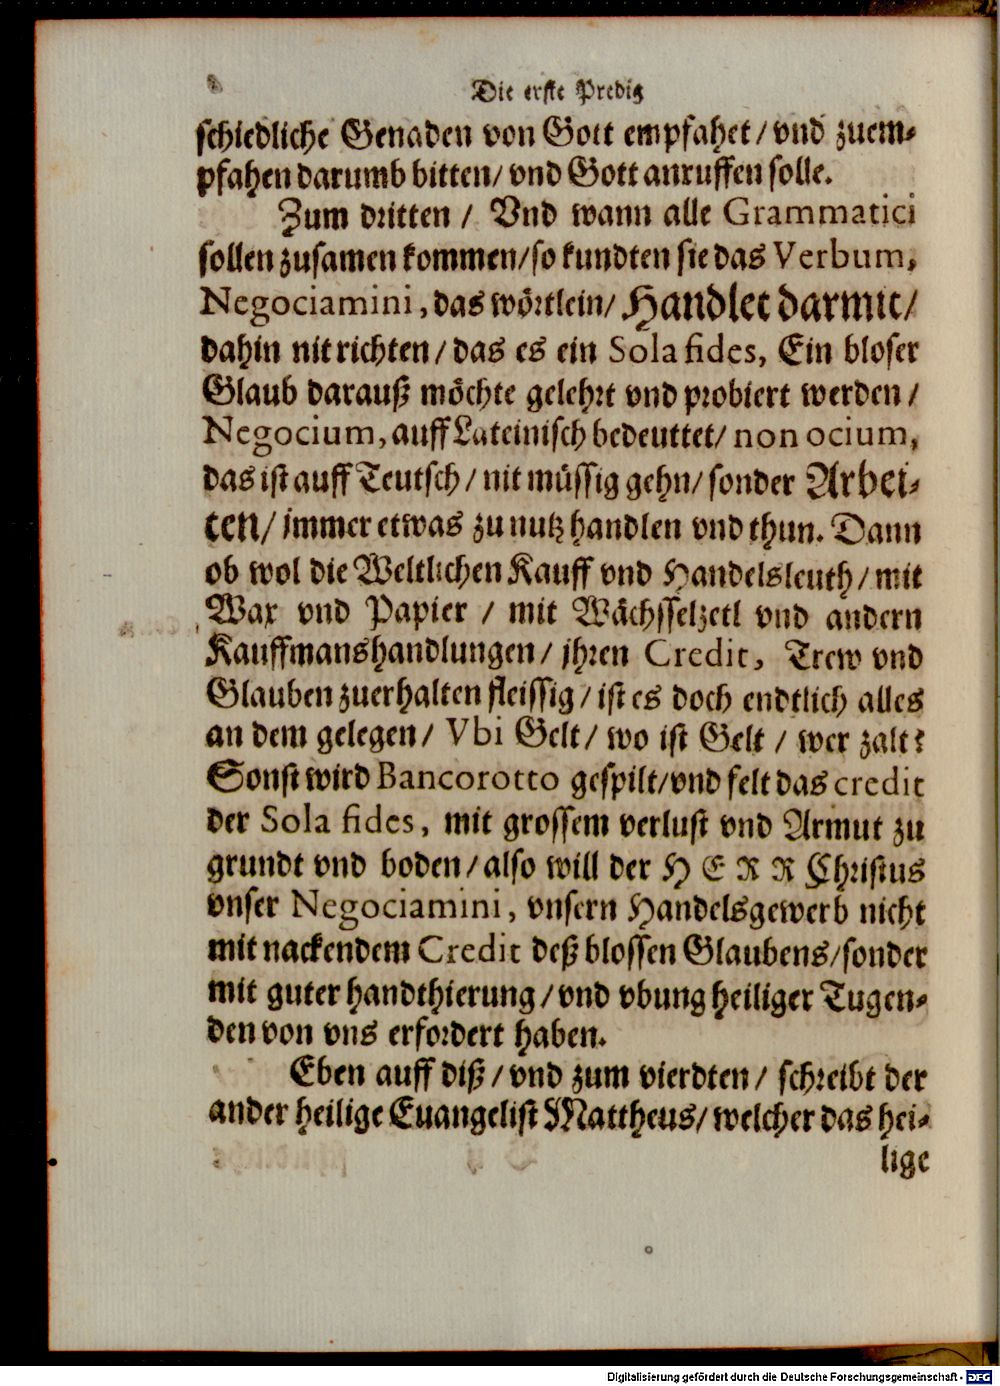 Die erste Predig
schiedliche Genaden von Gott empfahet / vnd zuem-
pfahen darumb bitten / vnd Gott anruffen solle.
Zum dritten / Vnd wann alle Grammatici
sollen zusamen kommen / so kundten sie das Verbum,
Negociamini, das wörtlein / Handlet darmit /
dahin nit richten / das es ein Sola fides, Ein bloser
Glaub darauß möchte gelehrt vnd probiert werden /
Negocium, auff Lateinisch bedeuttet / non ocium,
das ist auff Teutsch / nit müssig gehn / sonder Arbei-
ten / jmmer etwas zu nutz handlen vnd thun. Dann
ob wol die Weltlichen Kauff vnd Handelsleuth / mit
Wax vnd Papier / mit Wächsselzetl vnd andern
Kauffmanshandlungen / jhren Credit, Trew vnd
Glauben zuerhalten fleissig / ist es doch endtlich alles
an dem gelegen / Vbi Gelt / wo ist Gelt / wer zalt?
Sonst wird Bancorotto gespilt / vnd felt das credit
der Sola fides, mit grossem verlust vnd Armut zu
grundt vnd boden / also will der HERR Christus
vnser Negociamini, vnsern Handelsgewerb nicht
mit nackendem Credit deß blossen Glaubens / sonder
mit guter handthierung / vnd vbung heiliger Tugen-
den von vns erfordert haben.
Eben auff diß / vnd zum vierdten / schreibt der
ander heilige Euangelist Mattheus / welcher das hei-
lige
Digitalisierung gefördert durch die Deutsche Forschungsgemeinschaft - DFG